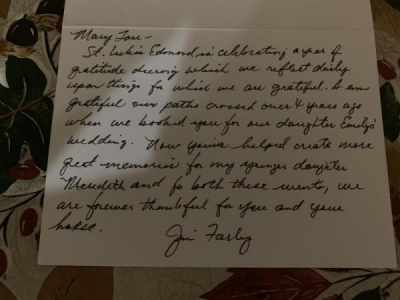 Mary Lou-
St. Luke's Edmond is celebrating a year of
gratitude during which we reflect daily
upon things for which we are grateful. I am
grateful our paths crossed over 4 years ago
when we booked you for our daughter Emily's
wedding. Now you've helped create more
great memories for my younger daughter
Meredith and for both these events, we
are forever thankful for you and your
Jim Farley